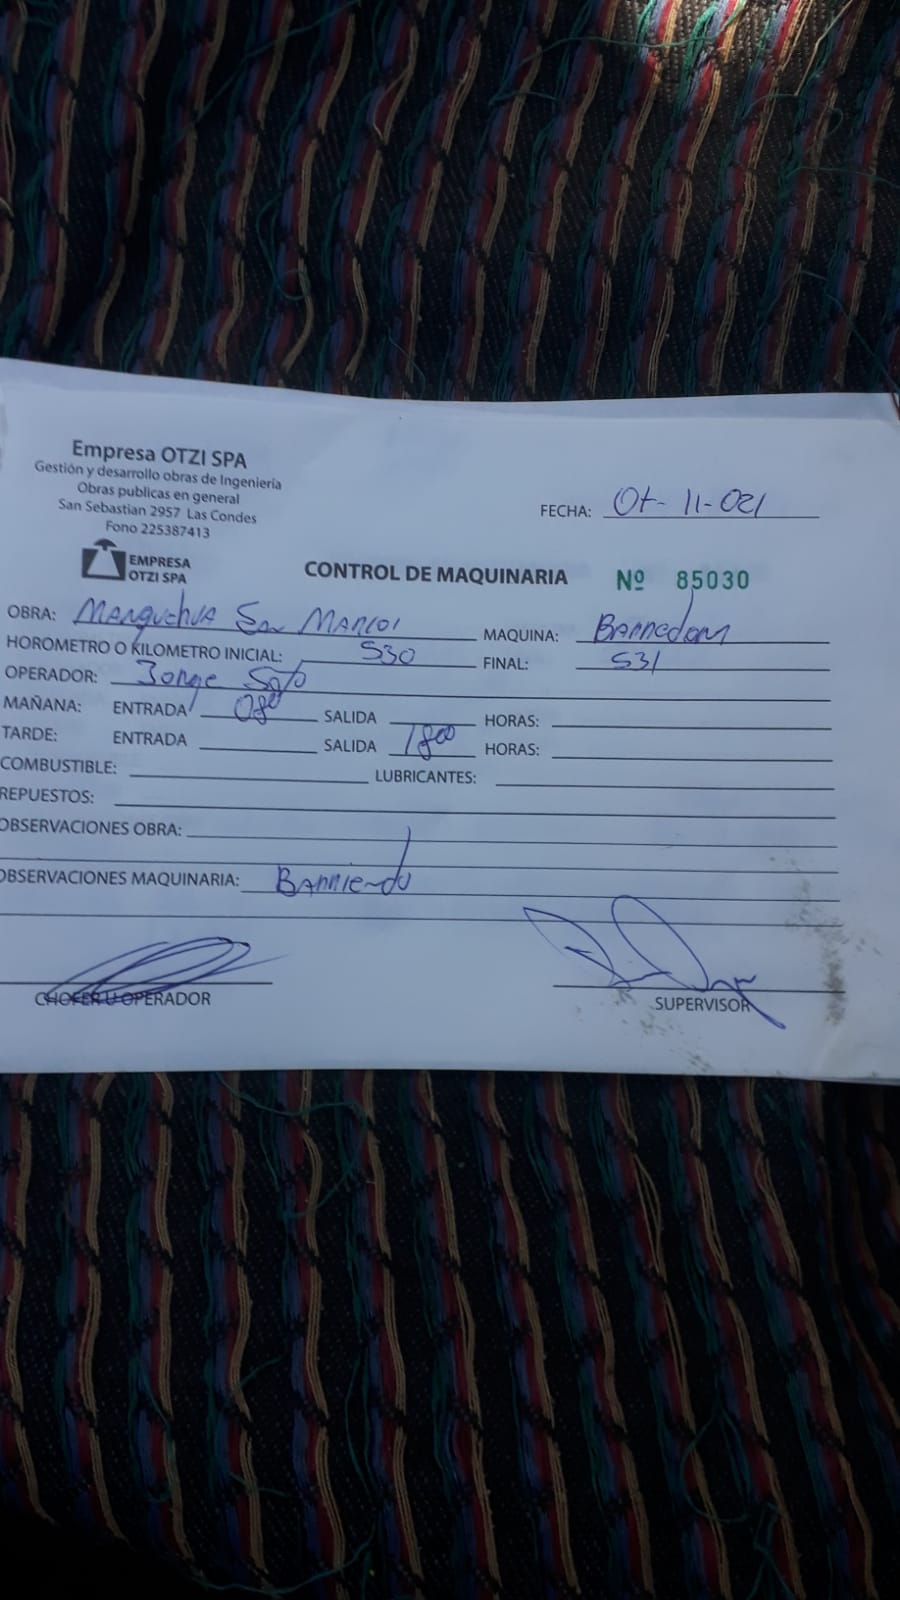 Empresa OTZI SPA
Gestión y desarrollo obras de Ingeniería
Obras publicas en general
San Sebastian 2957 Las Condes
Fono 225387413
EMPRESA
OTZI SPA
FECHA: 11-021
CONTROL DE MAQUINARIA Nº 85030
OBRA: San Marcos MAQUINA: Barredora
HOROMETRO O KILOMETRO INICIAL: 530 FINAL: 531
OPERADOR: Jorge Soto
MAÑANA: ENTRADA 0800 SALIDA HORAS:
TARDE: ENTRADA SALIDA 1800 HORAS:
COMBUSTIBLE: LUBRICANTES:
REPUESTOS:
OBSERVACIONES OBRA:
OBSERVACIONES MAQUINARIA: Barriendo
CHOFER U OPERADOR SUPERVISOR